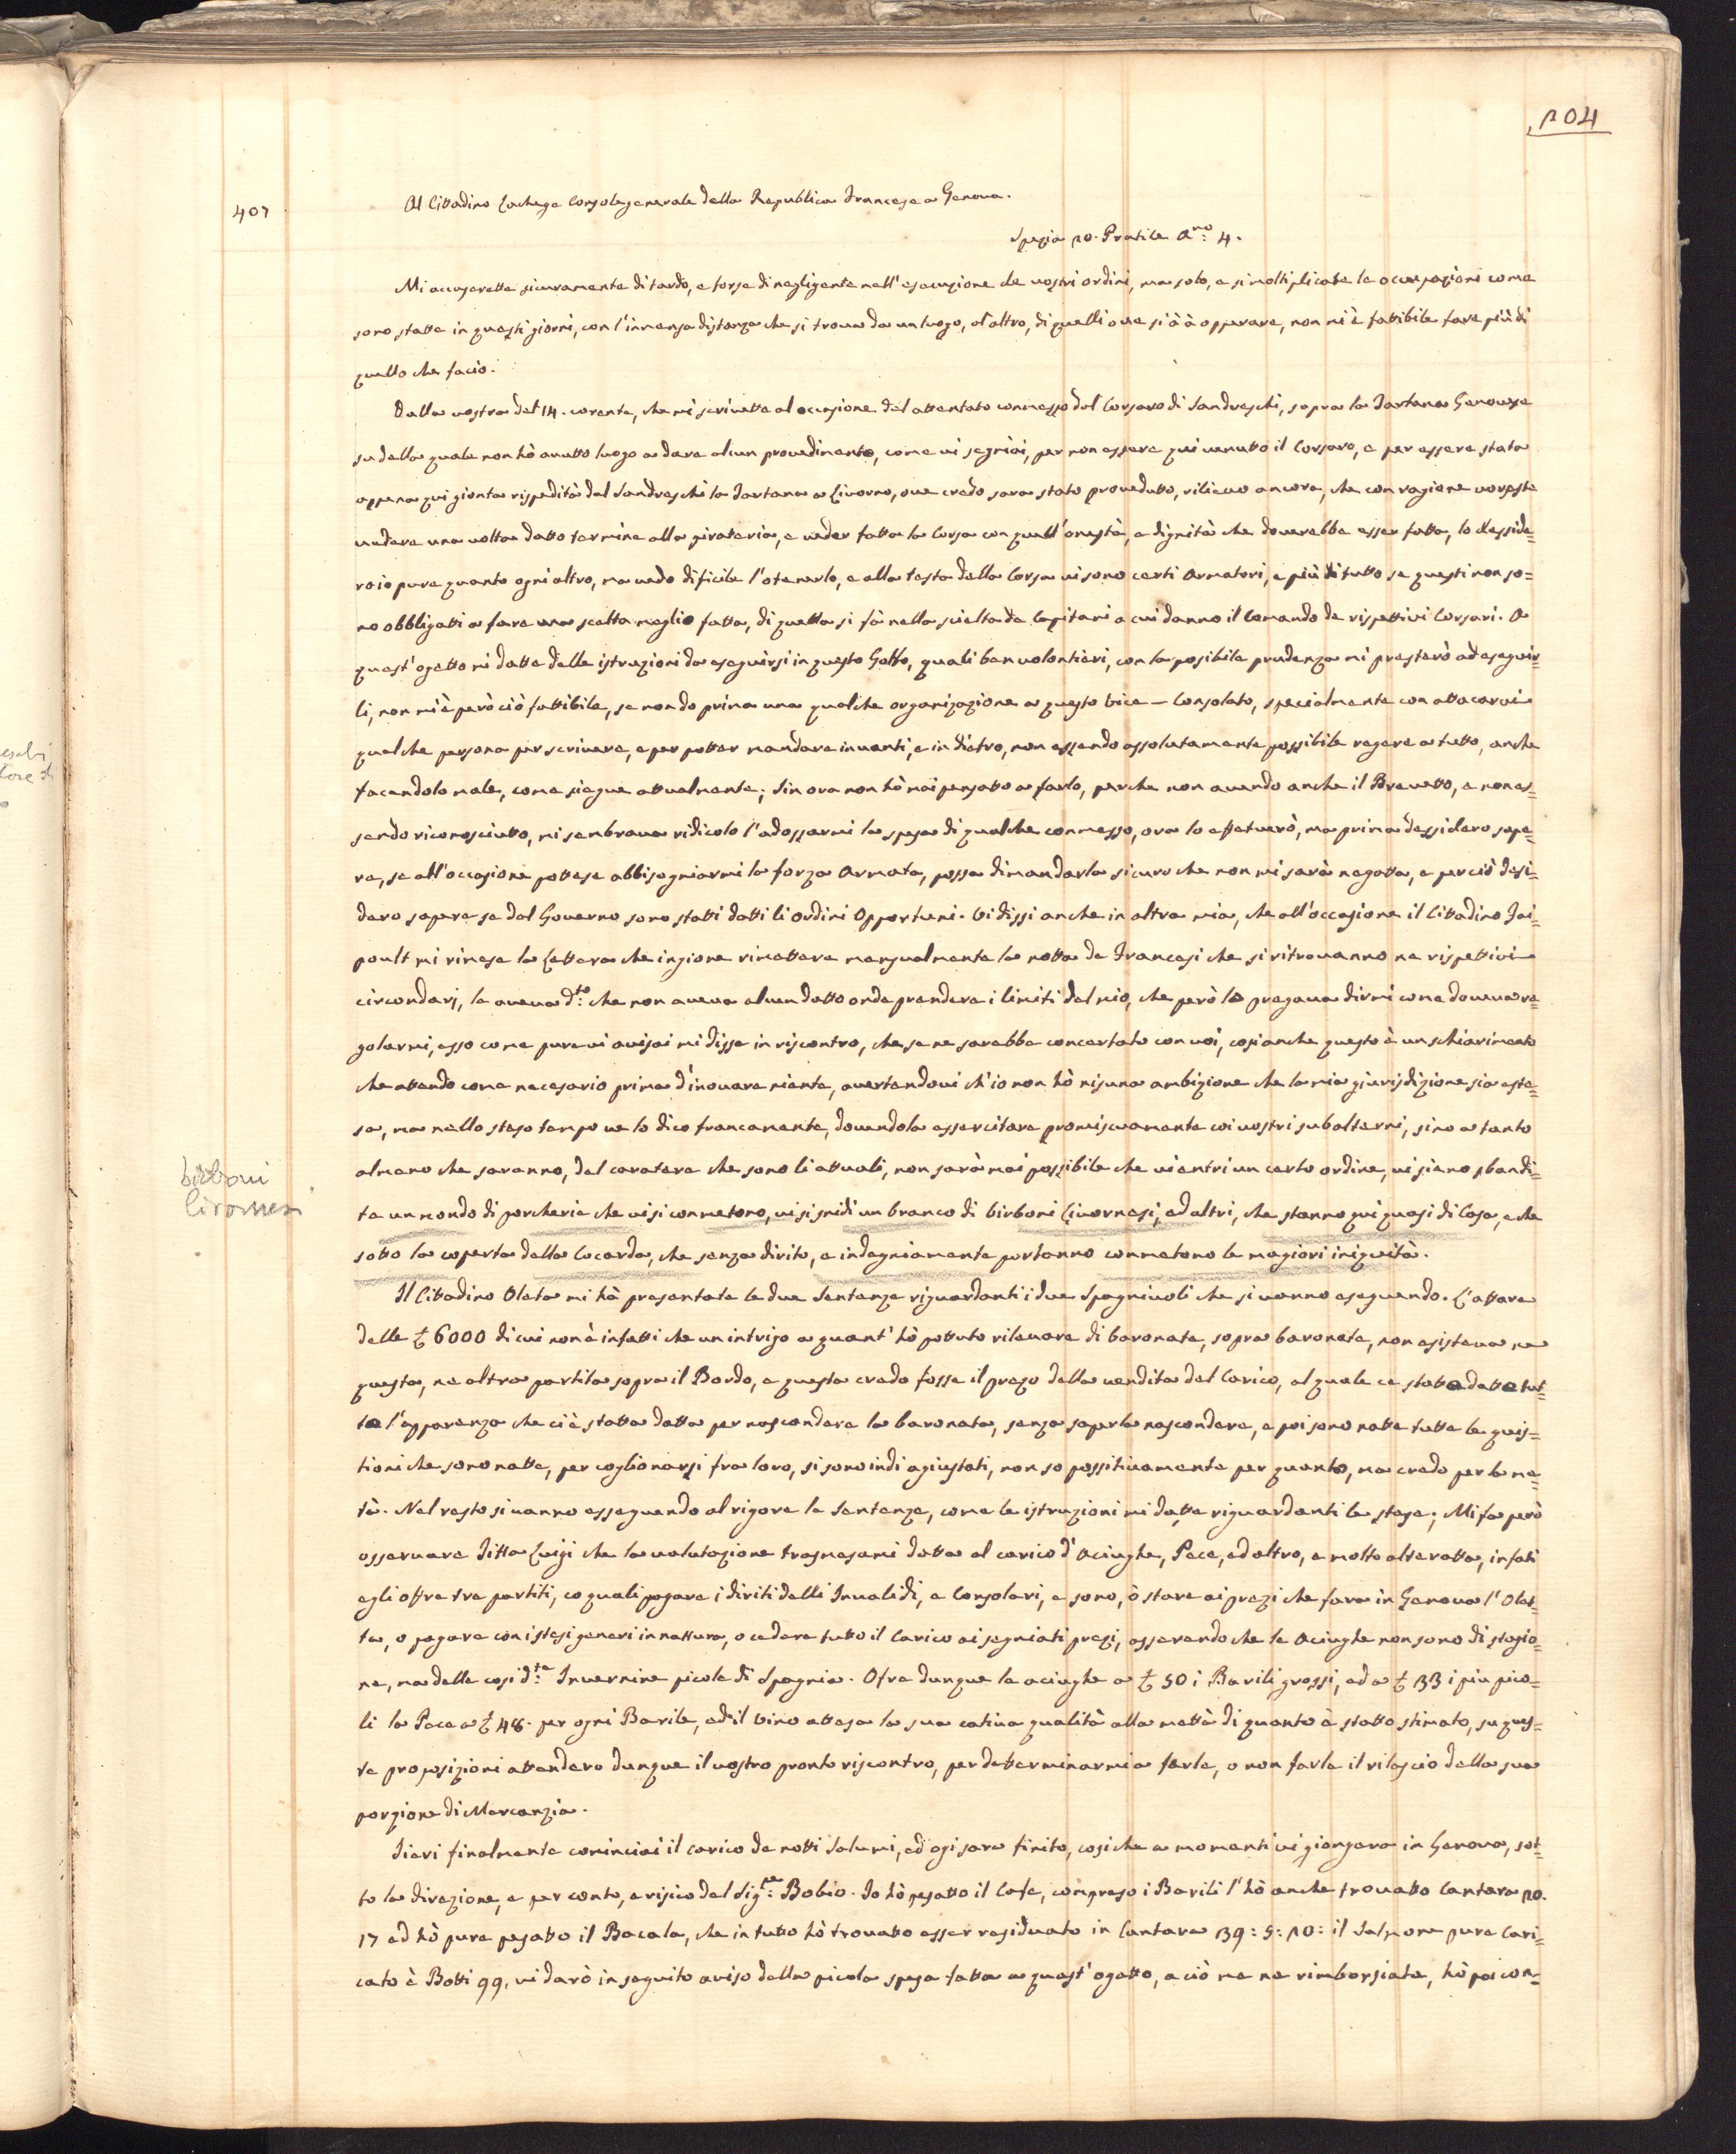 204
407
Al Cittadino Lachege Consolegenerale della Republica Francese a Genova.
Spezia 20. Pratile Ano: 4.
Mi accuserette sicuramente di tardo, e forse di negligente nell'esecuzione de vostri ordini, ma solo, e si moltiplicate le occupazioni come
sono statte in questi giorni, con l'immensa distanza che si trova da un luogo, al'altro, di quelli ove si à à opperare, non mi è fattibile fare più di
quello che facio.
Dalla vostra del 14. corente, che mi scrivette al occasione del attentato commesso dal Corsaro di Sandreschi, sopra la Tartana Genovese
su della quale non hò avutto luogo a dare alcun provedimento, come vi segniai, per non essere qui venutto il Corsaro, e per essere stata
appena qui gionta rispedita dal Sandreschi la Tartana a Livorno, ove credo sara stato provedutto, rilievo ancora, che con ragione voreste
vedere una volta datto termine alla pirateria, e veder fatta la Corsa con quell'onestà, e dignità che doverebbe esser fatta, lo desside=
ro io pure quanto ogni altro, ma vedo dificile l'otenerlo, e alla testa della Corsa vi sono certi Armatori, e più di tutto se questi non so=
no obbligatti a fare una scelta meglio fatta, di quella si fà nella scielta de Capitani a cui danno il Comando de rispettivi Corsari. A
quest'ogetto mi datte delle istruzioni da eseguirsi in questo Golfo, quali ben volontieri, con la posibile prudenza mi presterò ad eseguir=
li, non mi è però ciò fattibile, se non do prima una qualche organizazione a questo Vice-Consolato, specialmente con attacarvi
qualche persona per scrivere, e per potter mandare inventi, e in dietro, non essendo assolutamente possibile regere a tutto, anche
facendolo male, come siegue attualmente; Sin ora non hò mai pensatto a farlo, perche non avendo anche il Brevetto, e non es=
sendo riconosciutto, mi sembrava ridicolo l'adossarmi la spesa di qualche commesso, ora lo effetuerò, ma prima dessidero sape=
re, se all'occasione pottese abbisogniarmi la forza Armata, possa dimandarla sicuro che non mi sarà negatta, e perciò desi=
dero sapere se dal Governo sono statti datti li ordini Opportuni. Vi dissi anche in altra mia, che all'occasione il Cittadino Fai=
poult mi rimese la Lettera che ingione rimettere mensualmente la notta de Francesi che si ritrovanno ne rispettivi
circondarj, le aveva dto: che non aveva alcun datto onde prendere i limiti del mio, che però lo pregava dirmi come doveva re=
golarmi, esso come pure vi avisai mi disse in riscontro, che se ne sarebbe concertato con voi, cosi anche questo è un schiarimento
che attendo come necesario prima d'inovare niente, avertendovi ch'io non hò nisuna ambizione che la mia giurisdizione sia este=
sa, ma nello steso tempo ve lo dico francamente, dovendola essercitare promiscuamente coi vostri subalterni, sino a tanto
almeno che saranno, del caratere che sono li attuali, non sarà mai possibile che vi entri un certo ordine, vi sieno sbandi=
te un mondo di porcherie che vi si commetono, vi si snidi un branco di birboni Livornesi, ed altri, che stanno qui quasi di Casa, e che
sotto la coperta della Cocarda, che senza dirito, e indegniamente portanno commetono le magiori iniquità.
birboni
Livornesi
Il Cittadino Oleta mi hà presentate le due Sentenze riguardanti i due Spagniuoli che si vanno eseguendo. L'affare
delle £ 6000 di cui non è infatti che un intrigo a quant'hò pottuto rilevare di baronate, sopra baronate, non esisteva ne
questa, ne altra partita sopra il Bordo, e questa credo fosse il prezo della vendita del Carico, al quale ce statto datte tut=
te l'apparenza che ci è statta datta per nascondere la baronata, senza saperla nascondere, e poi sono natte tutte le quis=
tioni che sono natte, per coglionarsi fra loro, si sono indi agiustati, non so possitivamente per quanto, ma credo per la me=
tà. Nel resto si vanno esseguendo al rigore le Sentenze, come le istruzioni mi datte riguardanti le stese; Mi fa però
osservare Ditta Luigi che la valutazione trasmesami datta al carico d'Aciughe, Pece, ed altro, e molto alteratta, infati
egli offre tre partiti, co quali pagare i diriti delli Invalidi, e Consolari, e sono, ò stare ai prezi che fara in Genova l'Olet=
ta, o pagare con istesi generi in nattura, o cedere tutto il Carico ai segniati prezi, asserendo che le Aciughe non sono di stagio=
ne, ma delle cosi dte: Invernine picole di Spagnia. Ofre dunque le aciughe a £ 50 i Barili grossi, ed a £ 33 i piu pico=
li la Pece a £ 48. per ogni Barile, ed il Vino attesa la sua cativa qualità alla mettà di quanto è statto stimato, su ques=
te proposizioni attendero dunque il vostro pronto riscontro, per determinarmi a farle, o non farle il rilascio della sua
porzione di Mercanzia.
Iieri finalmente cominciai il carico de notti Salumi, ed ogi sara finito, cosi che a momenti vi giongera in Genova, sot=
to la direzione, e per conto, e risico del Sigre: Bobio. Io hò pesatto il Cafe, compreso i Barili l'hò anche trovatto Cantara 20.
17 ed hò pure pesatto il Bacala, che in tutto hò trovatto esser residuato in Cantara 39: 5: 20: il Salmone pure Cari=
cato è Botti 99, vi darò in seguito aviso della picola spesa fatta a quest'ogetto, a ciò me ne rimborsiate, hò poi con=